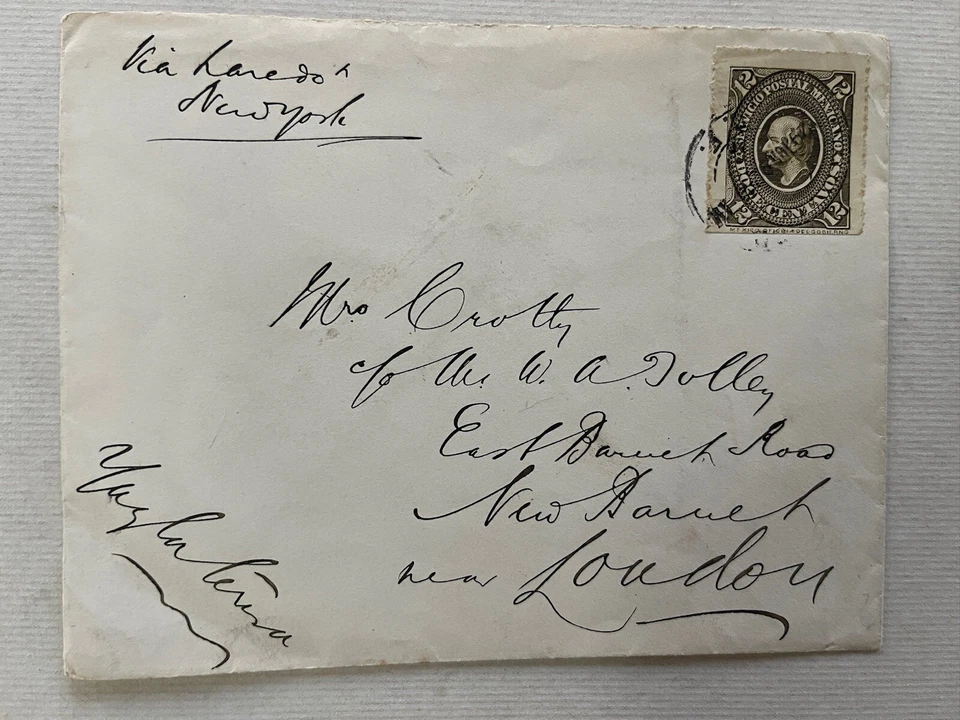 Via Laredo &
New York
12 12
SERVICIO POSTAL MEXICANO
DOCE CENTAVOS
12 12
Mrs. Crotty
c/o Mr. W. A. Tolley
East Barnet Road
New Barnet
near London
Ynglaterra